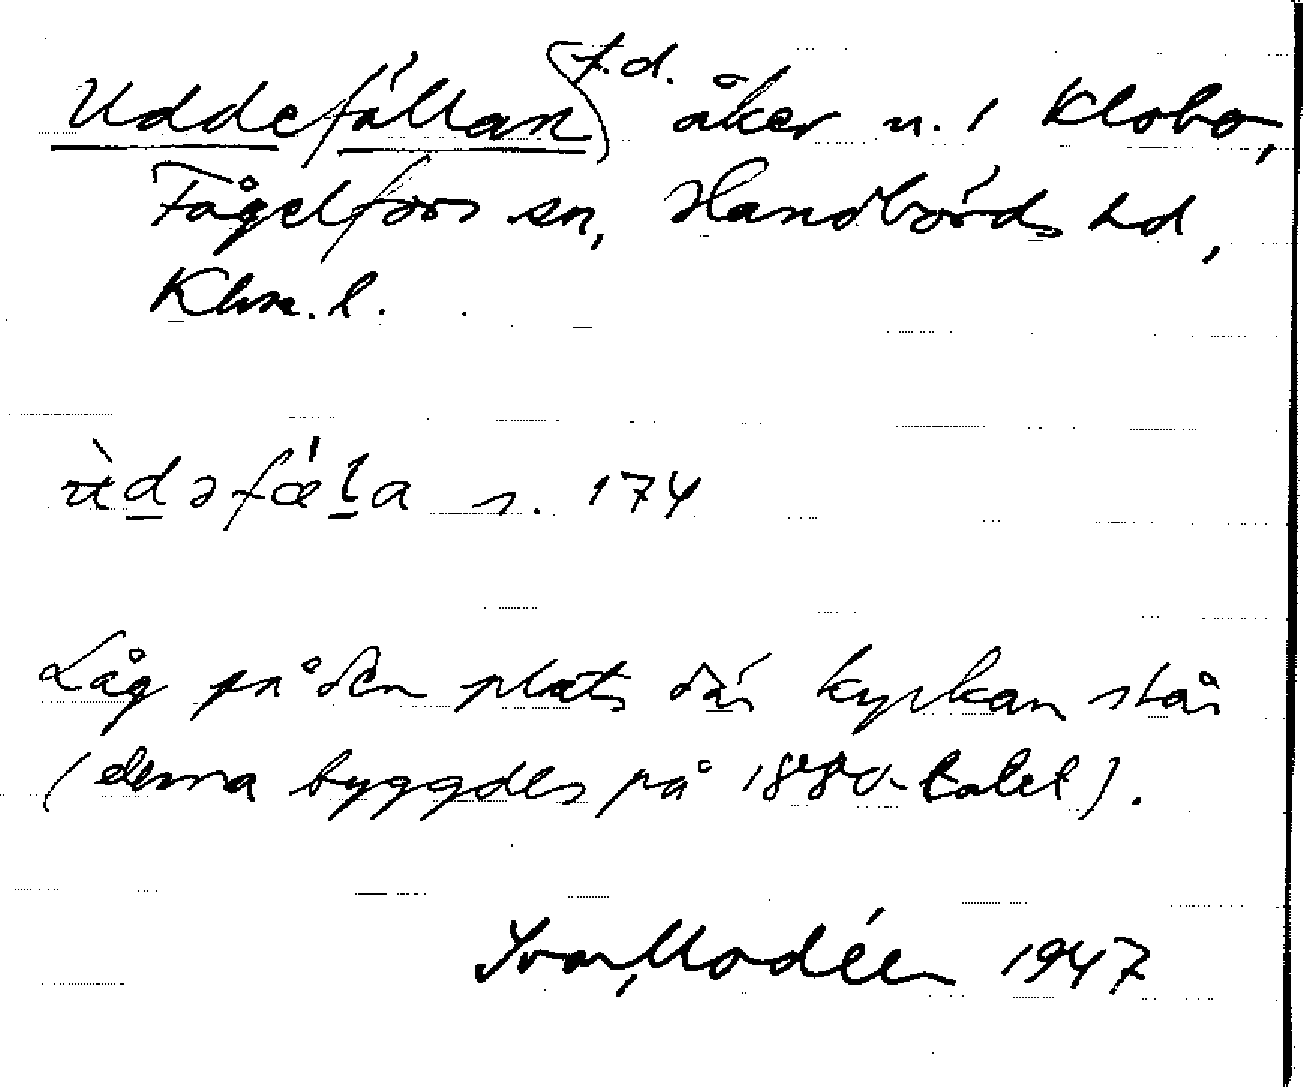 Uddefällan, f.d. åker n. 1 Klobo,
Fågelfors sn, Handbörds hd,
Klm. l.
ùdəfæ̍la s. 174
Låg på den plats där kyrkan står
(denna byggdes på 1880-talet).
Ivar Modéer 1947